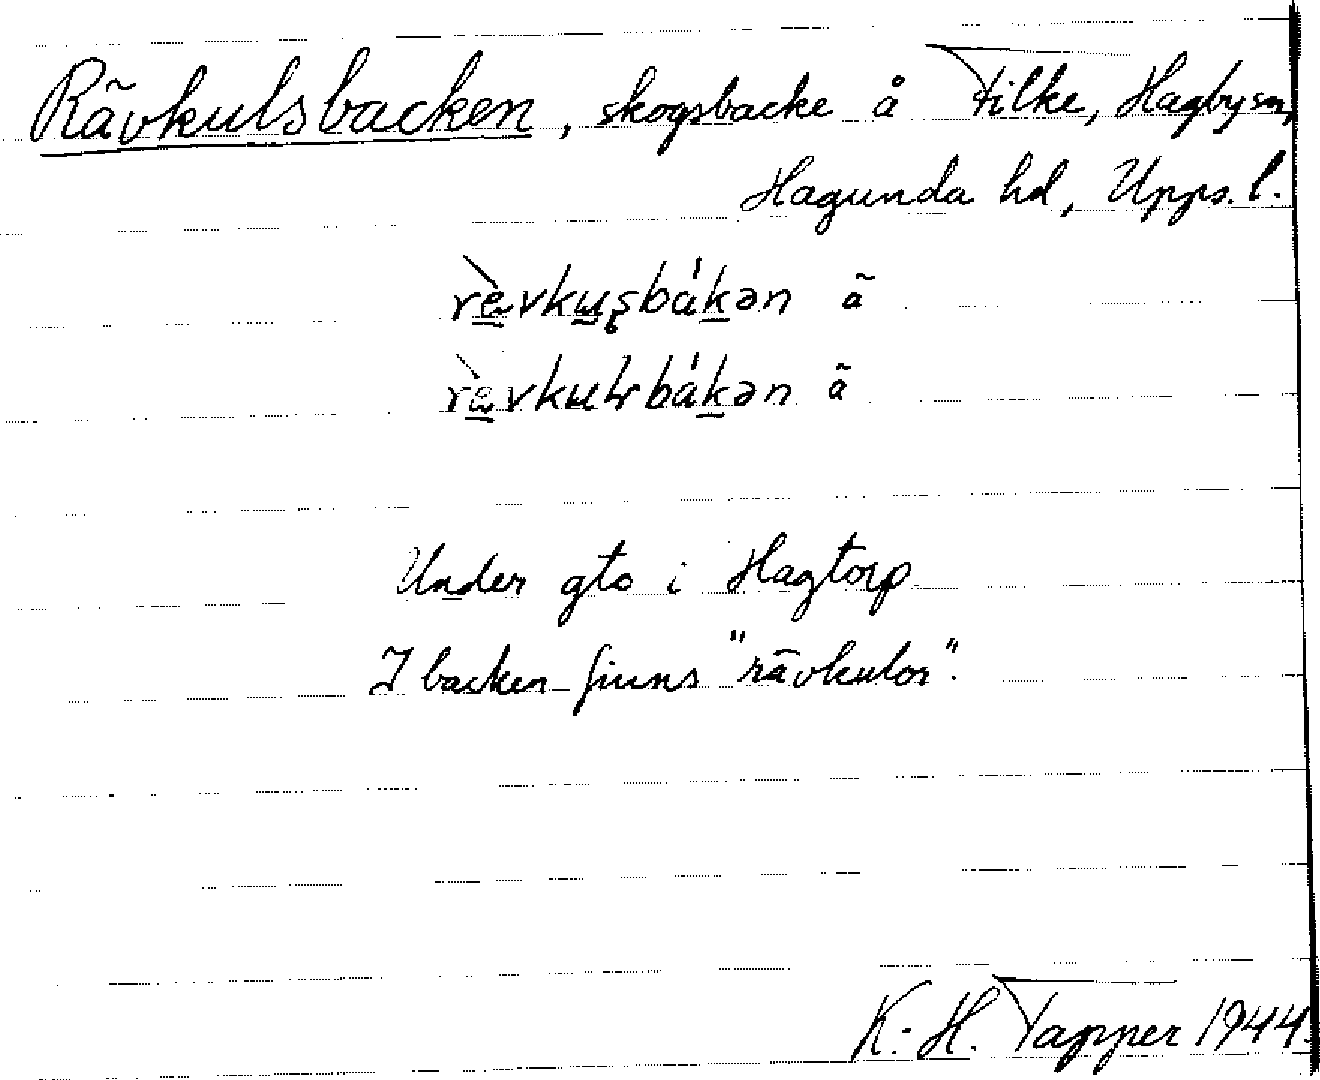 Rävkulsbacken, skogsbacke å Tilke, Hagby sn,
Hagunda hd, Upps. l.
rὲvkuʂbákən ã
rὲvkulsbákən ã
Under gto i Hagtorp
I backen finns "rävkulor".
K.-H. Tapper 1944.